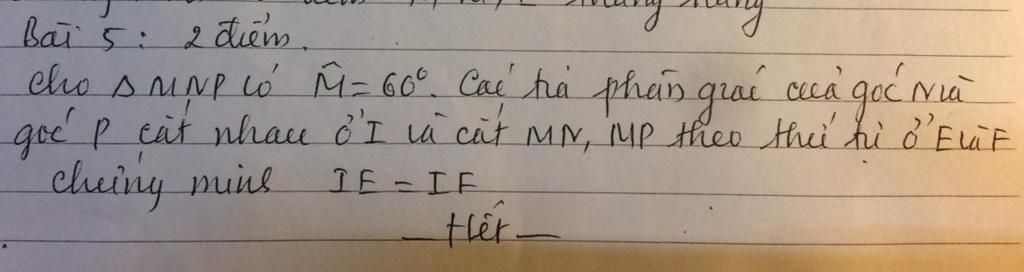 Bài 5: 2 điểm.
Cho Δ MNP có M̂ = 60°. Các tia phân giác của góc N và
góc P cắt nhau ở I và cắt MN, MP theo thứ tự ở E và F
chứng minh IE = IF
— Hết —